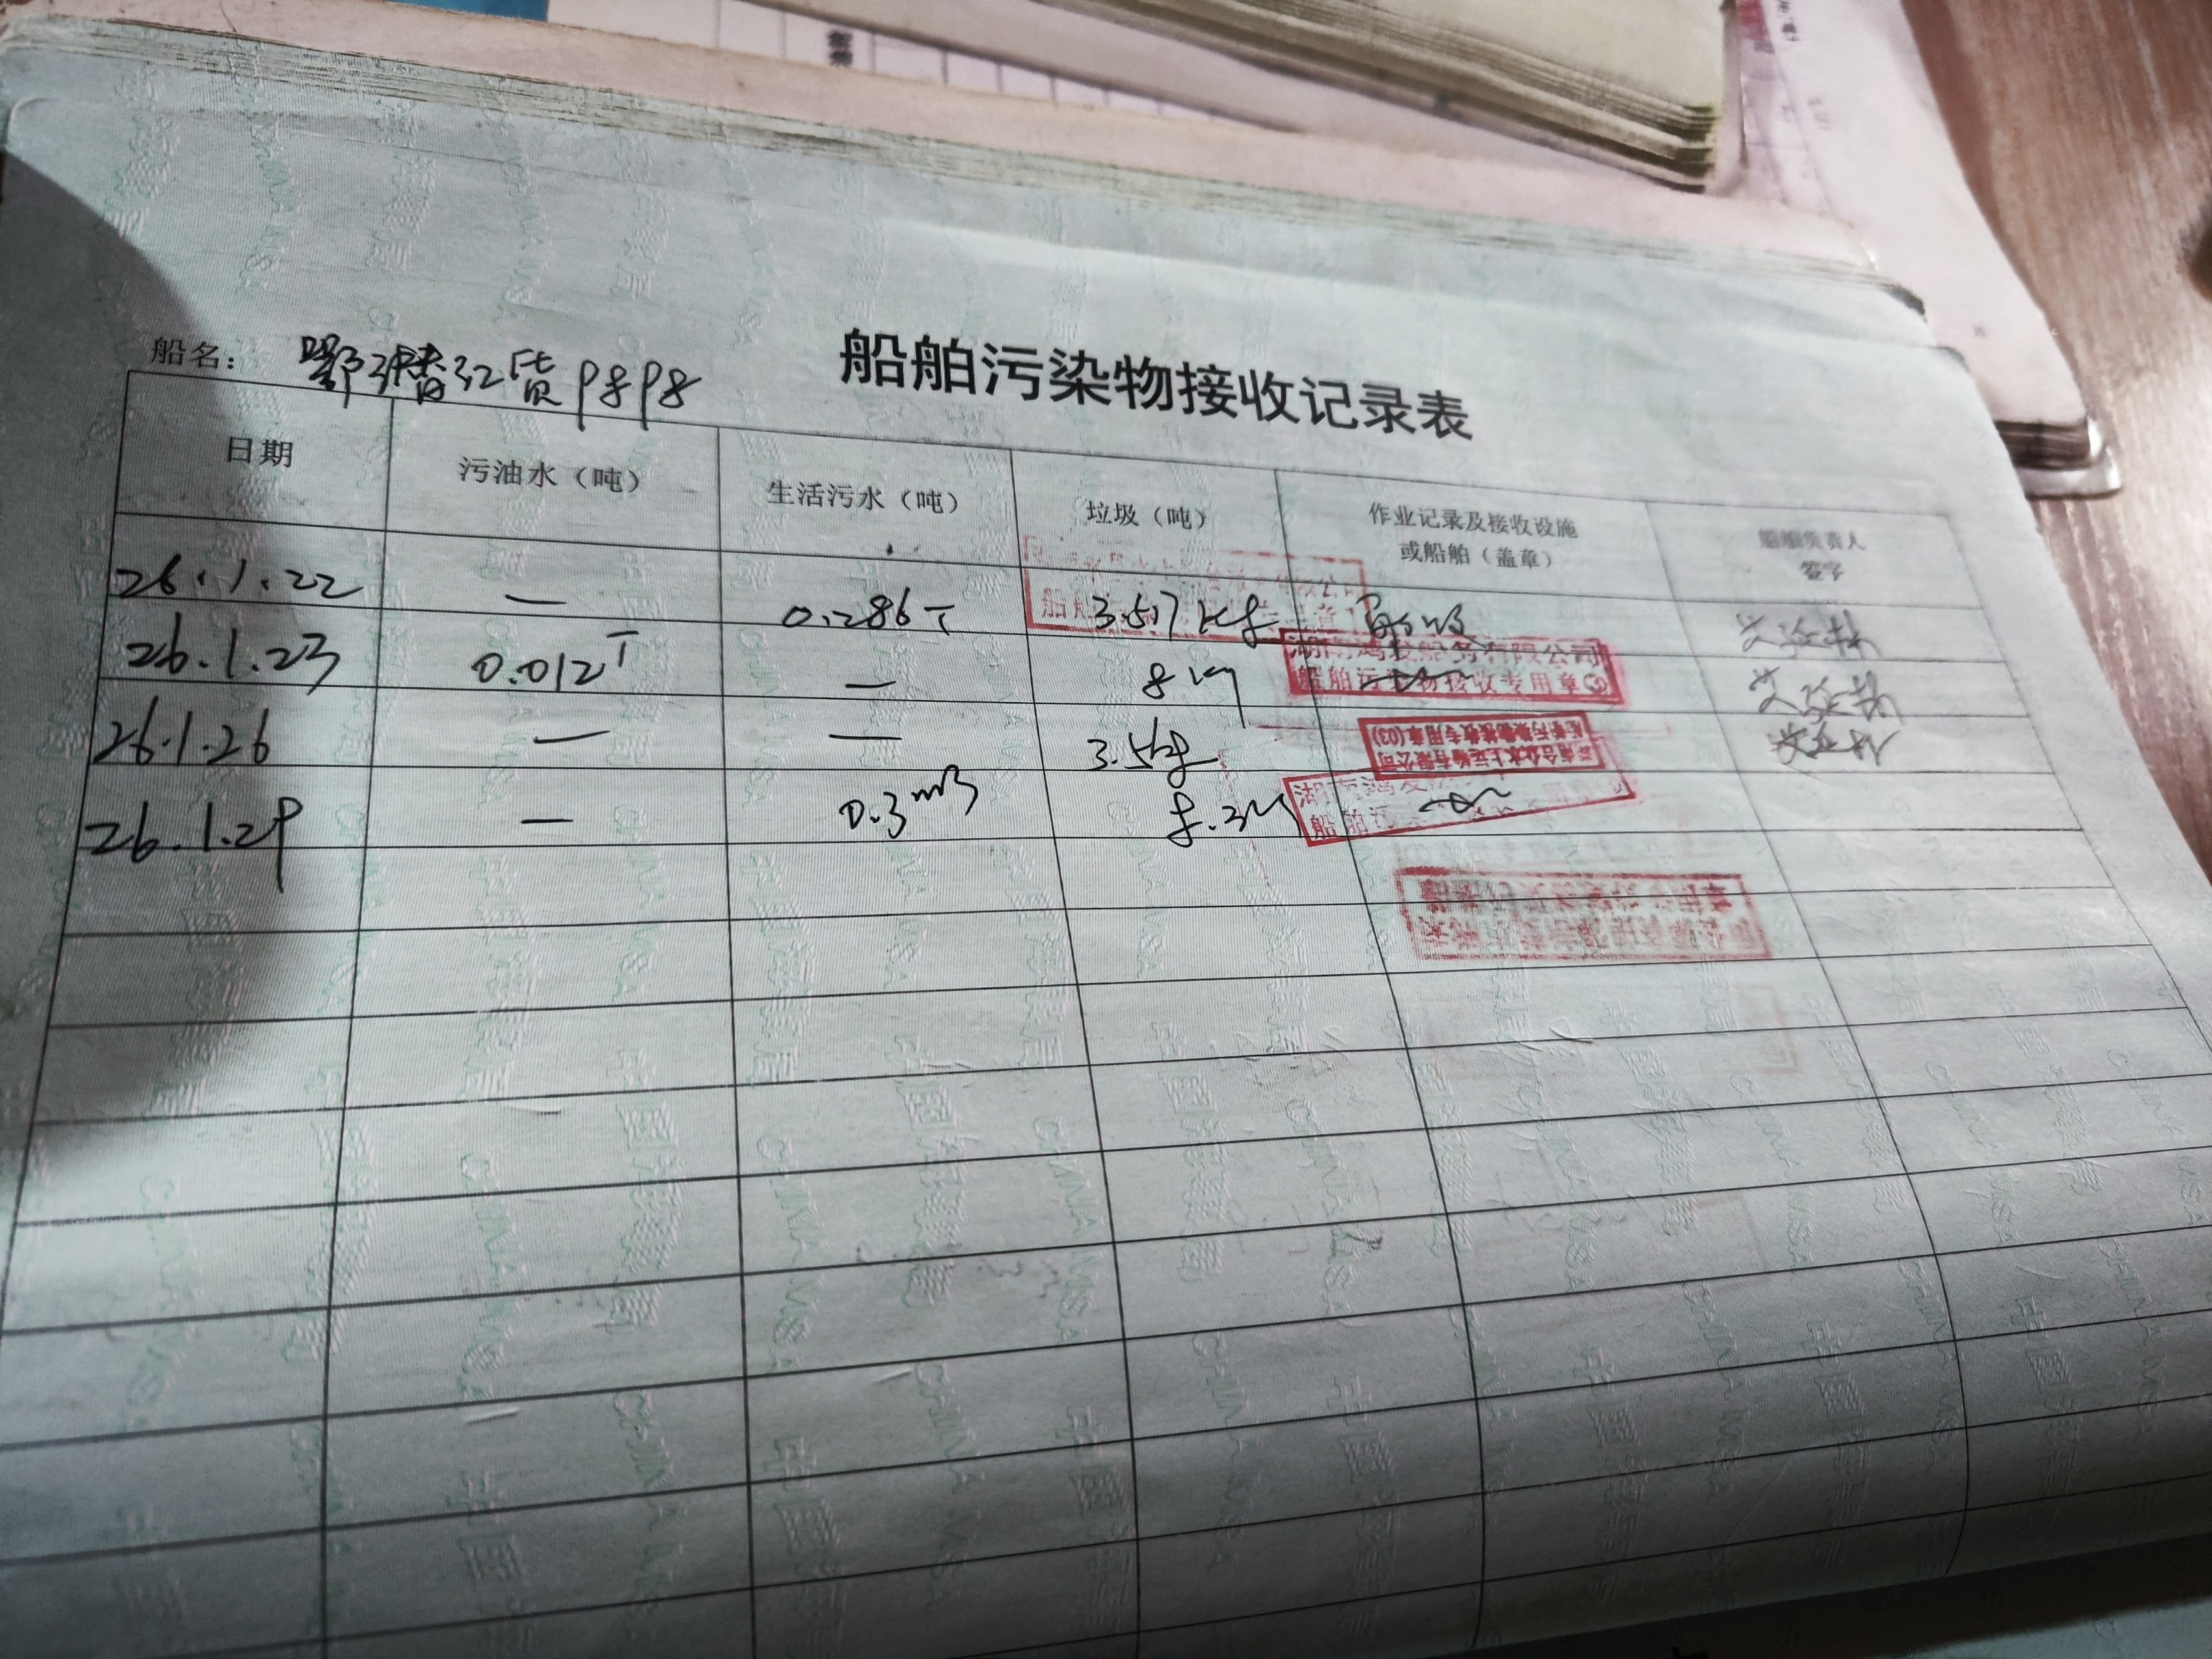 船舶污染物接收记录表
船名：鄂潜江货9898
日期 污油水（吨） 生活污水（吨） 垃圾（吨） 作业记录及接收设施或船舶（盖章） 船舶负责人签字
26.1.22 — 0.286T 3.517kg
26.1.23 0.012T — 8kg
湖南鸿发船务有限公司
船舶污染物接收专用章
26.1.26 — — 3.5kg
水上运输有限公司
船舶污染物接收专用章(03)
26.1.29 — 0.3m3 8.2
CHINA MSA
中国海事局